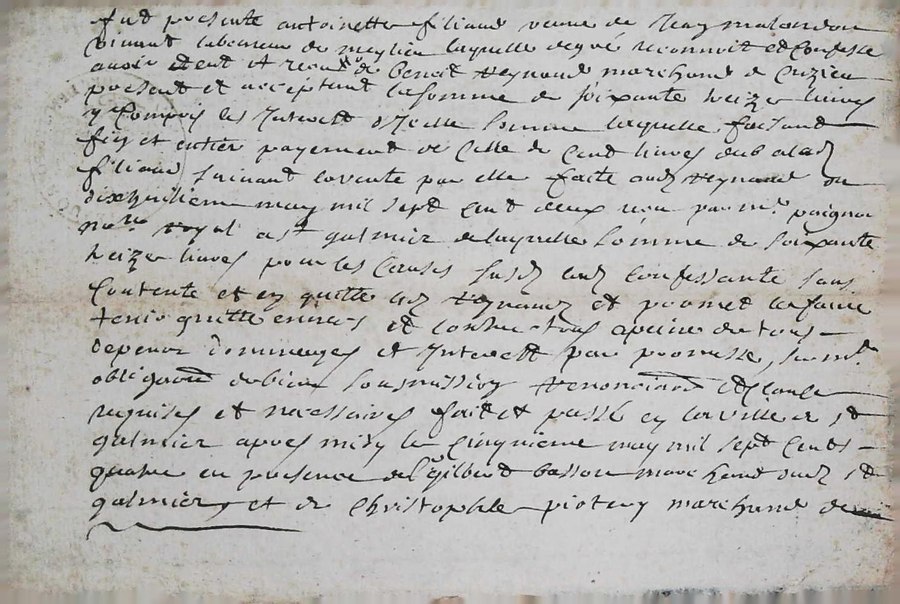 fut presente antoinette filiand veuve de Jean malandon
vivant laboureur de meylieu laquelle de gré reconnoit et confesse
avoir et receu de benoit Reynaud marchand de cuzieu
present et acceptant la somme de soixante treize livres
y compris les Interest d'Icelle somme laquelle faisant
fin et entier payement de celle de cent livres deub a lad
filiand suivant la vente par elle faite aud Reynaud du
dixhuitieme may mil sept cent deux receu par mr paignon
nore royal a st galmier de laquelle somme de soixante
treize livres pour les causes susd lad confessante sans
contente et en quitte led Reynaud et promet le faire
tenir quitte envers et contre tous a peine de tous
depens dommages et Interest par promesse, serment
obligaon de biens soumission Renonciaon et clause
requises et necessaires fait et passé en la ville de st
galmier apres midy le cinquieme may mil sept cents
quatre en presence de gilbert basson marchand dud st
galmier, et de christophle piotery marchand de